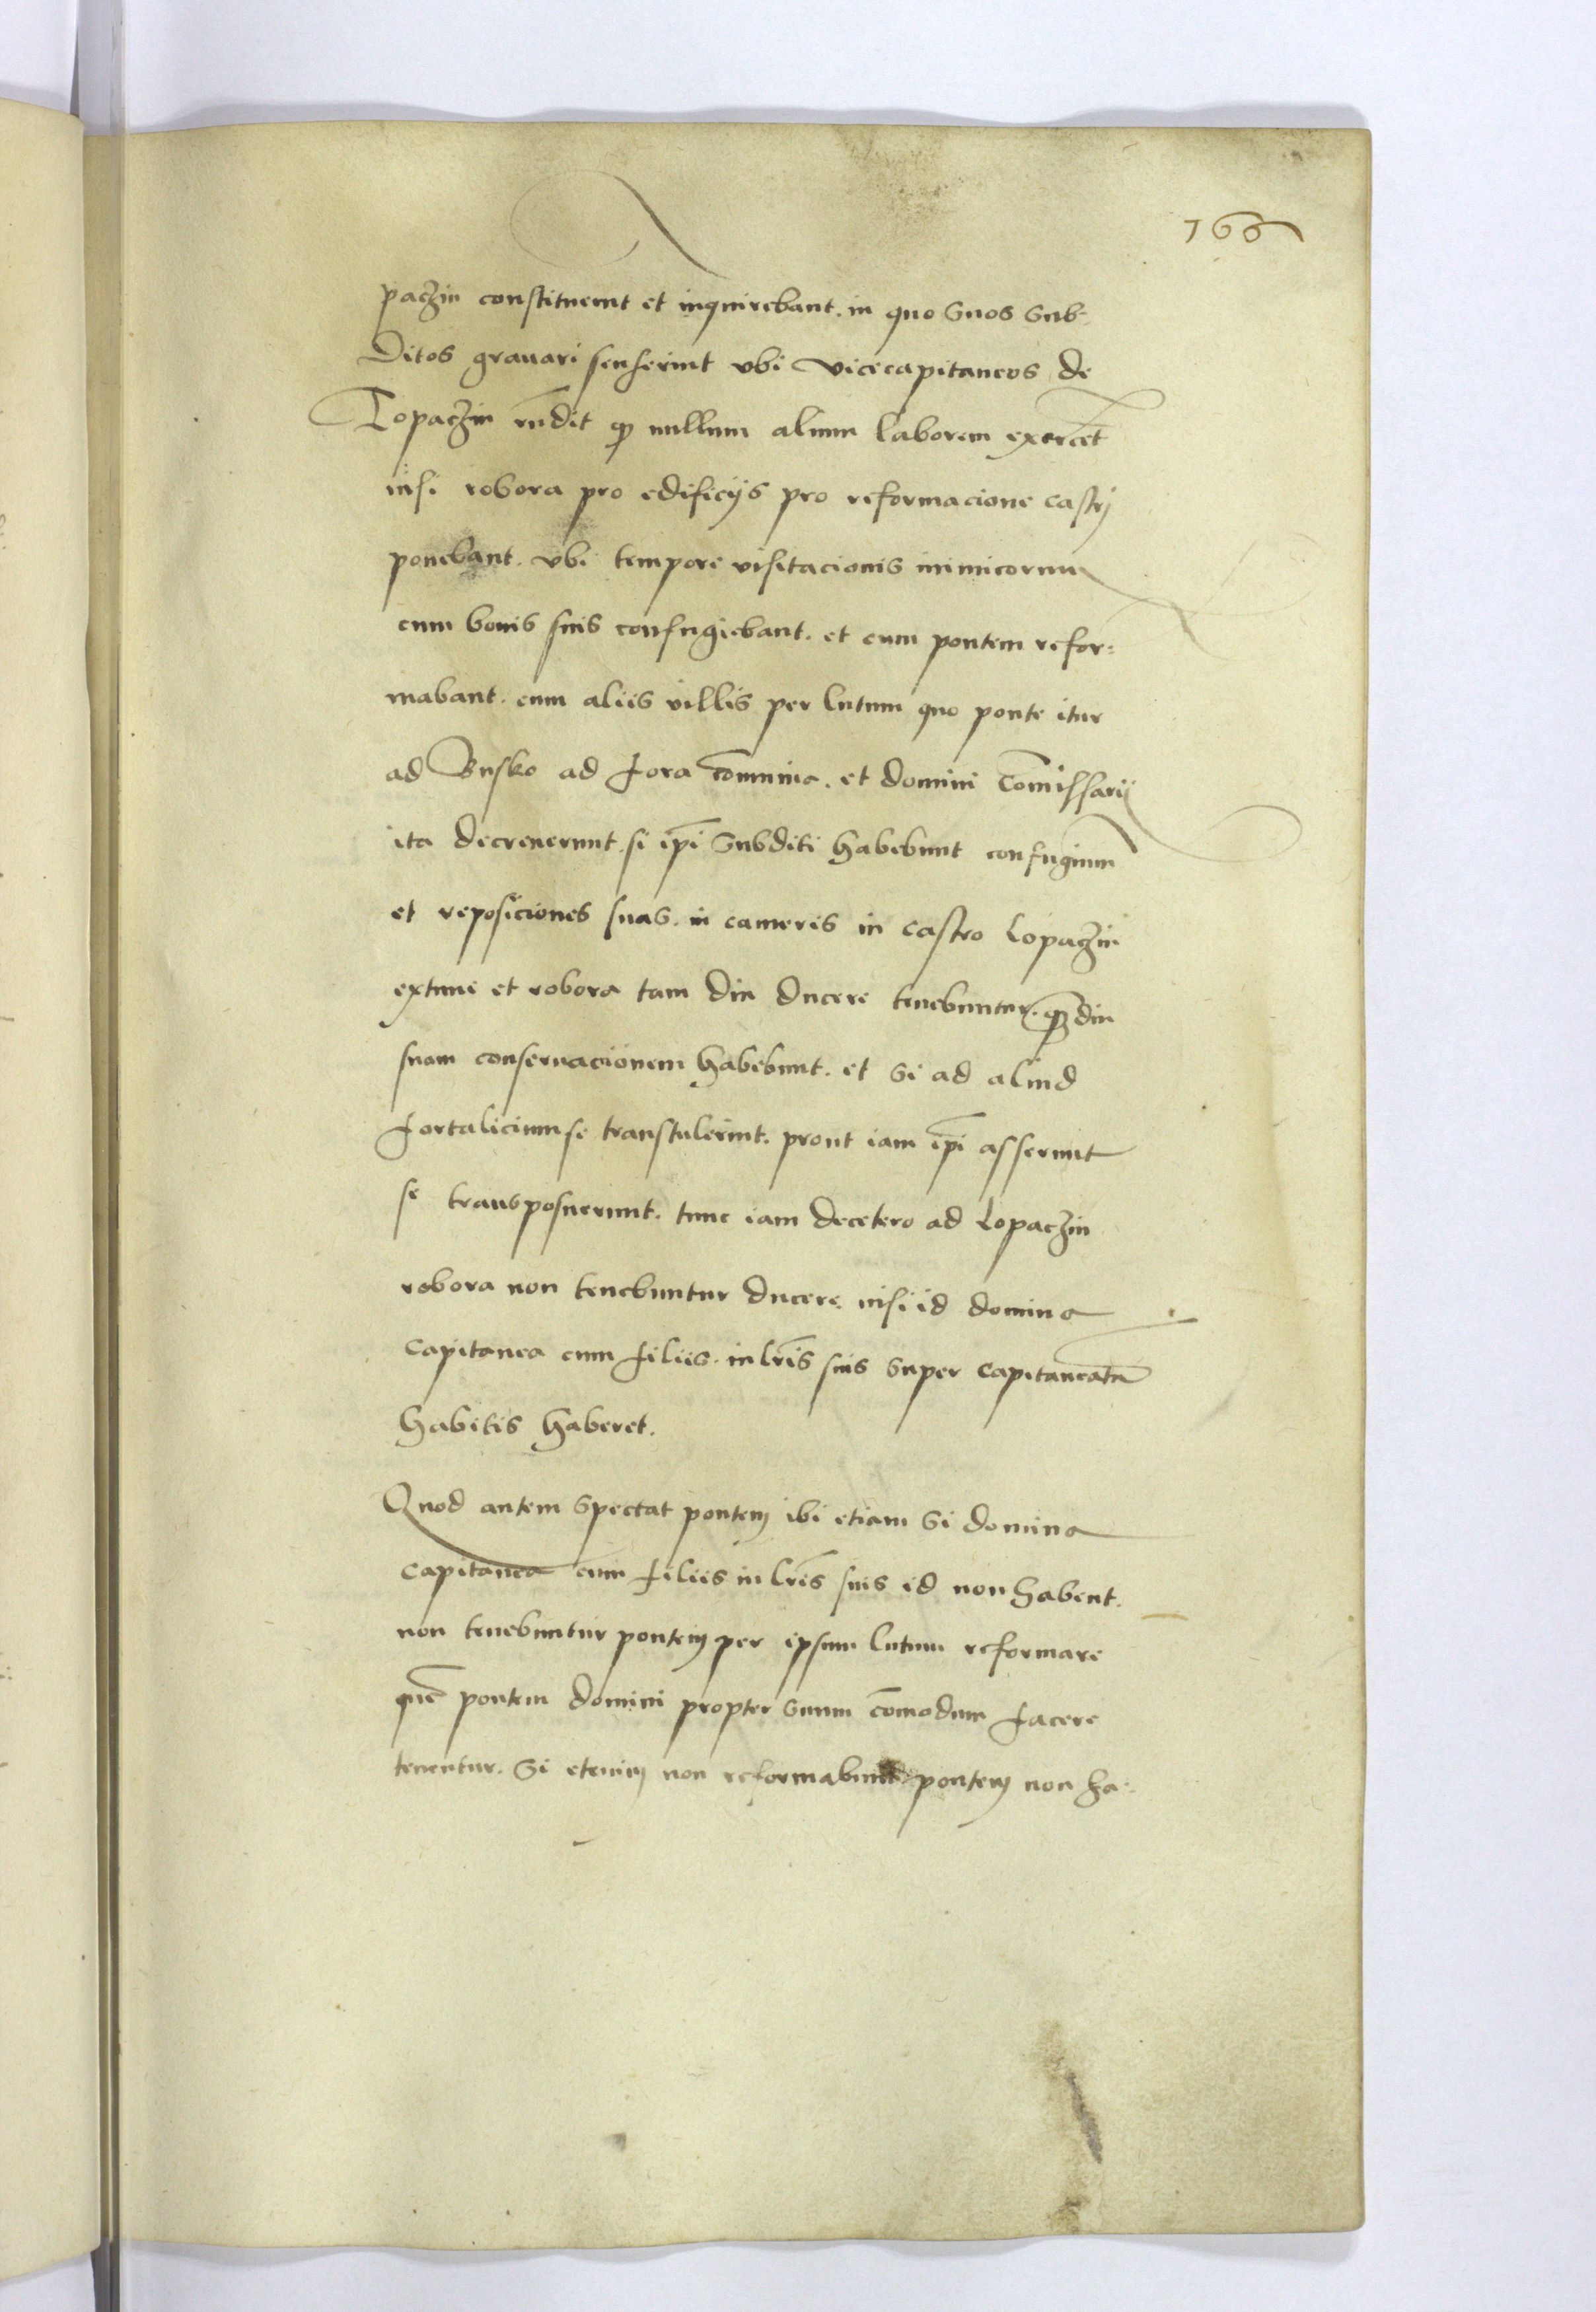 166
paczin constituerunt et inquirebant. in quo suos sub-
ditos grauari senserint vbi vicecapitaneus de
Lopaczin rn̄dit qꝫ nullum alium laborem exercet
nisi robora pro edificijs pro reformacione castrj
ponebant. vbi tempore visitacionis inimicorum
cum bonis suis confugiebant. et cum pontem refor:
mabant. cum aliis villis per lutum quo ponte itur
ad Busko ad fora com̄unia. et domini Com̄issarij
ita decreuerunt. si ip̄i subditi habebunt confugium
et reposiciones suas. in cameris in castro Lopaczin
extunc et robora tam diu ducere tenebuntur. qꝫdiu
suam conseruacionem habebunt. et si ad aliud
fortalicium se transtulerint. prout iam ip̄i asserunt
se transposuerunt. tunc iam decetero ad Lopaczin
robora non tenebuntur ducere nisi id domina
Capitanea cum filiis. in lr̄is suis super capitaneatū
habitis haberet.
Quod autem spectat pontem ibi etiam si domina
Capitanea cum filiis in lr̄is suis id non habent.
non tenebuntur pontem per ipsum lutum reformare
quē pontem domini propter suum com̄odum facere
tenentur. Si etenim non reformabunt pontem non ha: